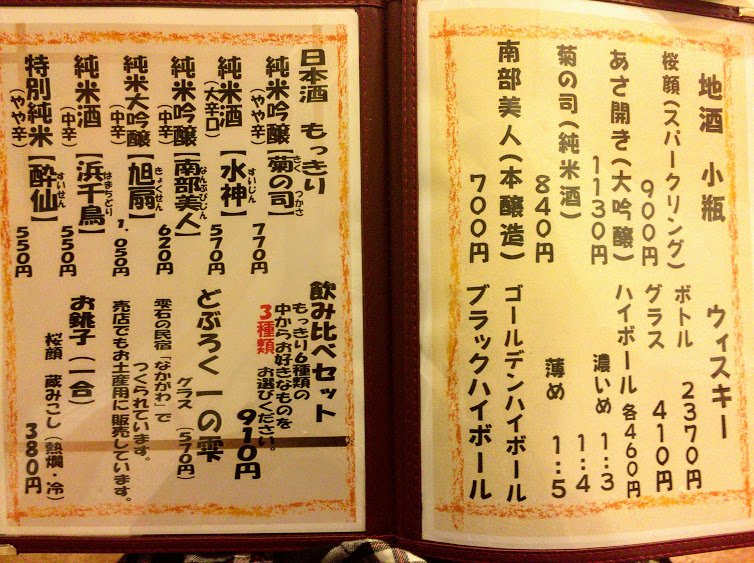 地酒 小瓶
桜顔(スパークリング)
900円
あさ開き(大吟醸)
1130円
菊の司(純米酒)
840円
南部美人(本醸造)
700円
ウィスキー
ボトル 2370円
グラス 410円
ハイボール 各460円
濃いめ 1:3
1:4
薄め 1:5
ゴールデンハイボール
ブラックハイボール
日本酒 もっきり
純米吟醸【菊の司】
(やや辛) きく つかさ
770円
純米酒【水神】
(大辛口) すいじん
570円
純米吟醸【南部美人】
(中辛) なんぶびじん
620円
純米大吟醸【旭扇】
(中辛) きょくせん
1.050円
純米酒【浜千鳥】
(中辛) はまちどり
550円
特別純米【酔仙】
(やや辛) すいせん
550円
飲み比べセット
もっきり6種類の
中からお好きなものを
3種類 お選びください。
910円
どぶろく 一の雫
グラス(570円)
雫石の民宿「なかがわ」で
つくられています。
売店でもお土産用に販売しています。
お銚子(一合)
桜顔 蔵みこし(熱燗・冷)
380円